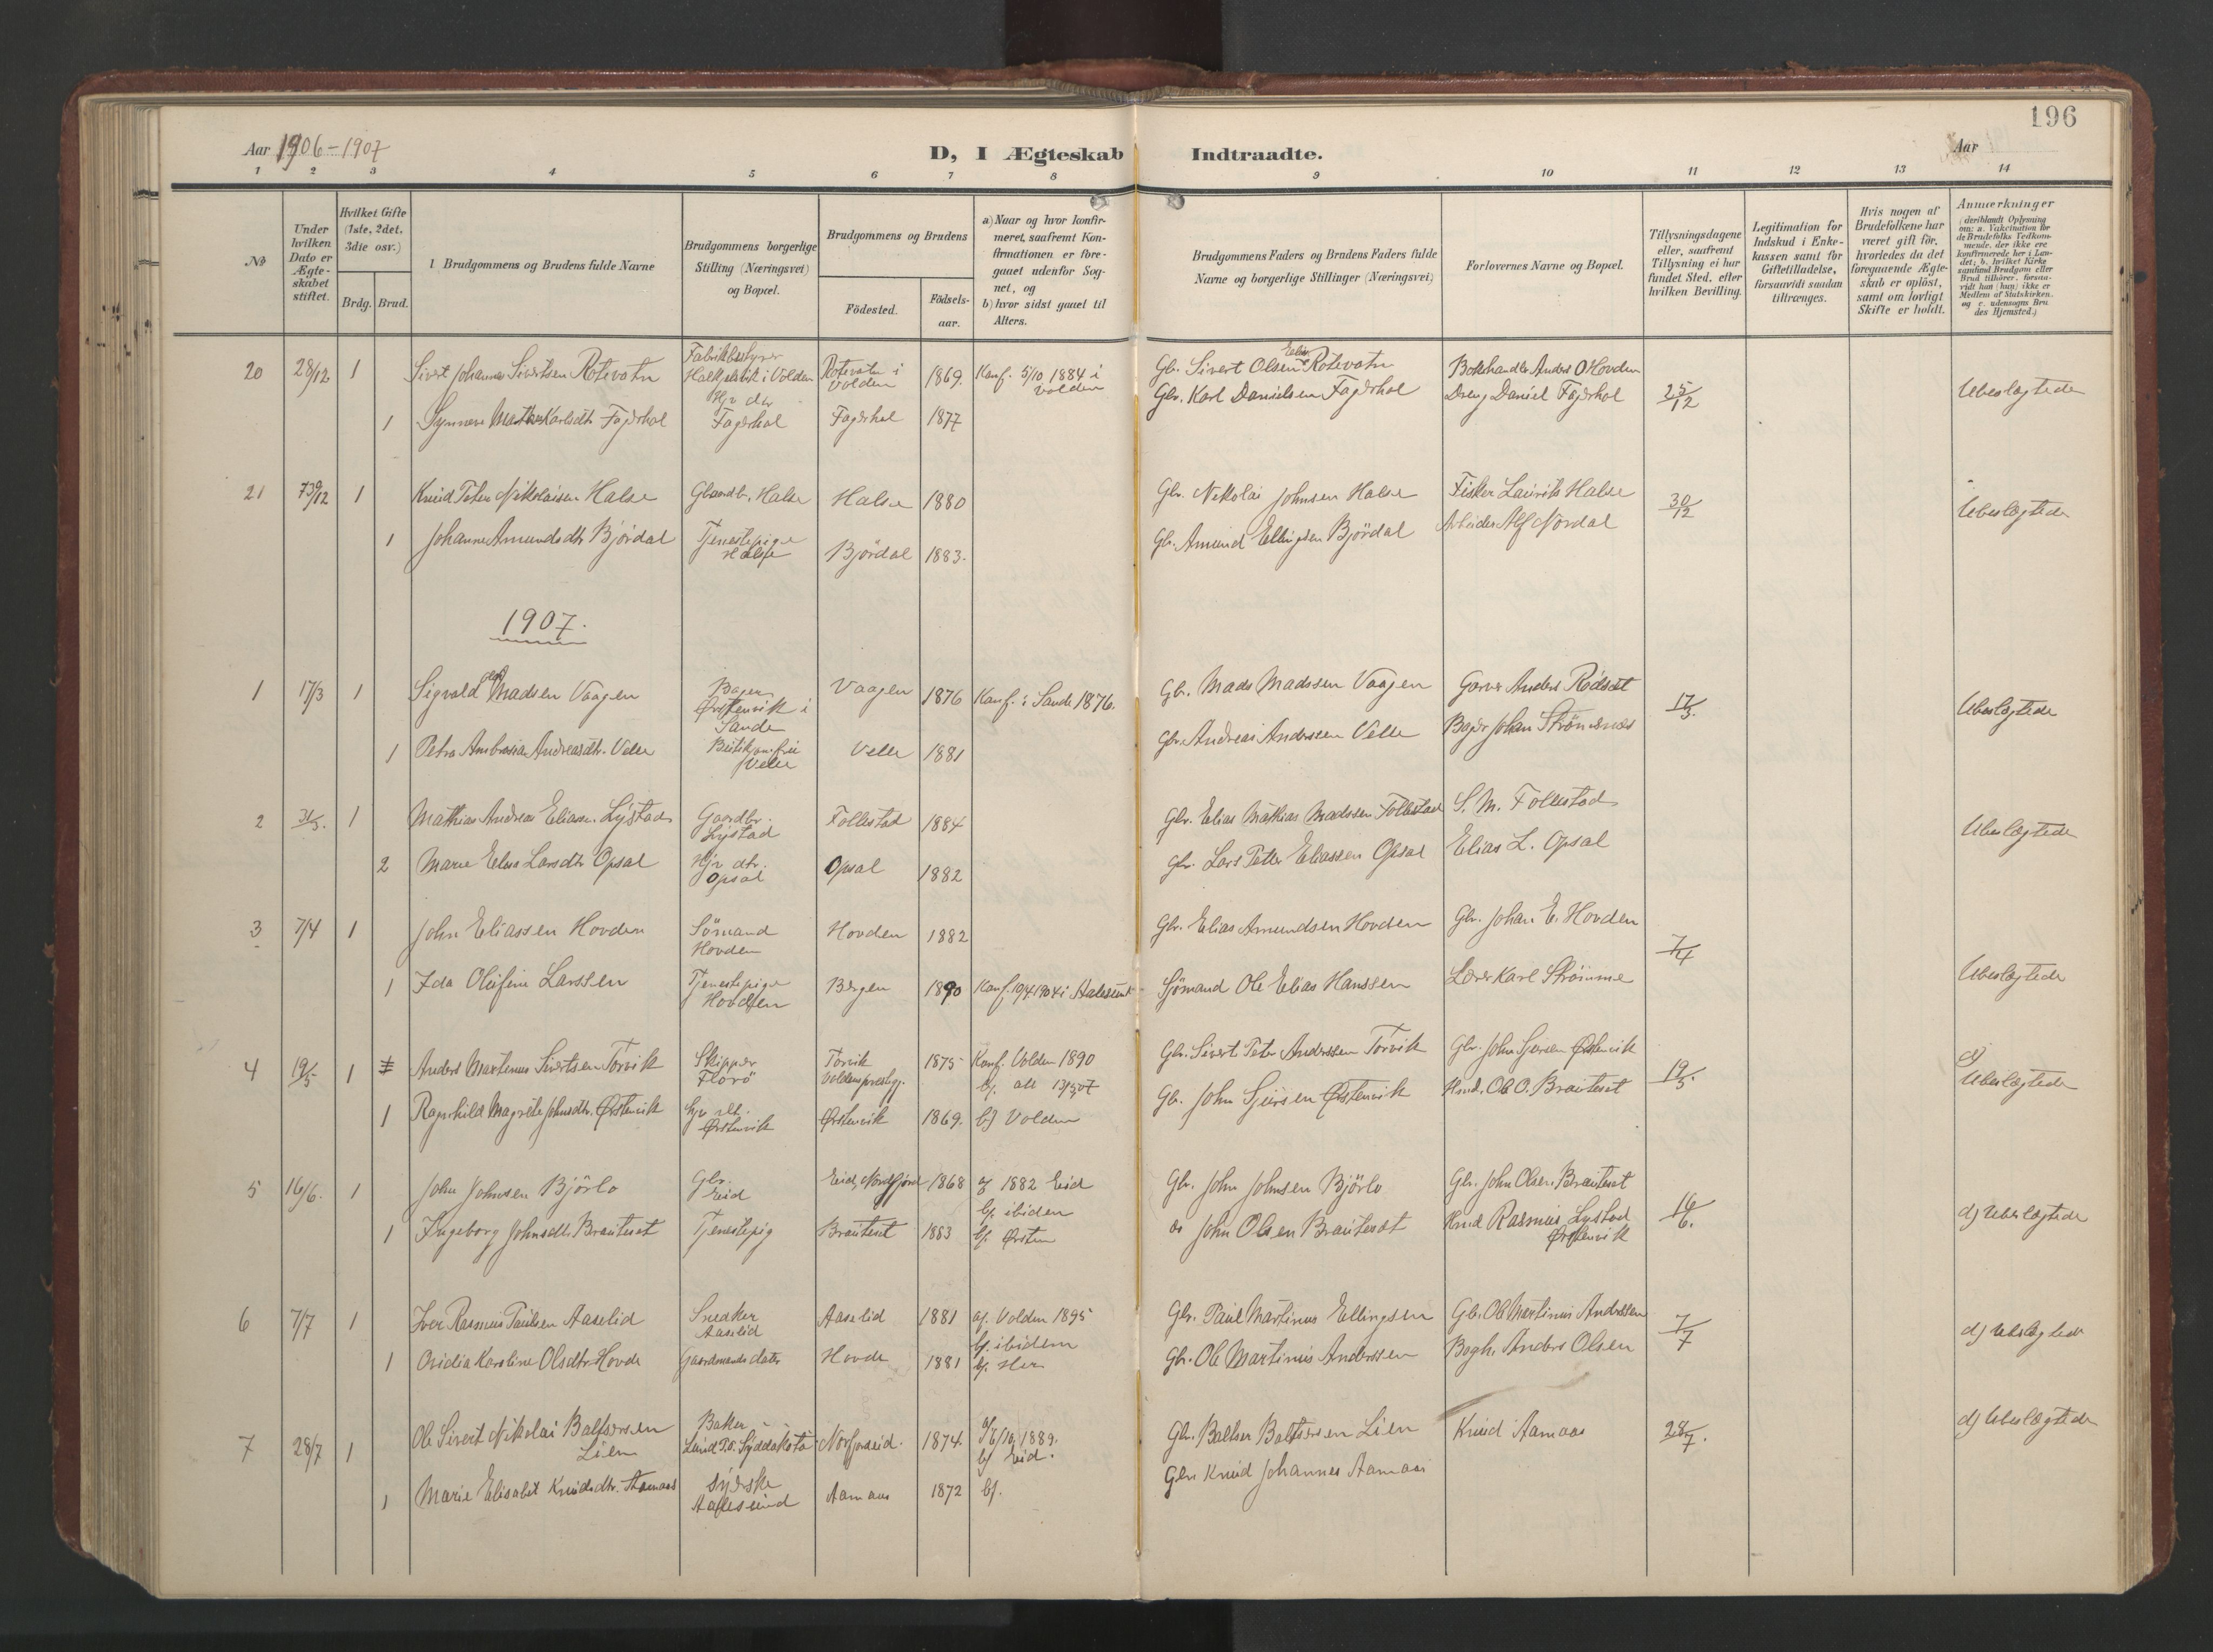 196
Aar 1906-1907
D, I Ægteskab Indtraadte.
Aar
1 2 3 4 5 6 7 8 9 10 11 12 13 14
No
Under hvilken Dato er Ægteskabet stiftet.
Hvilket Gifte (1ste, 2det, 3die osv.)
Brdg. Brud.
Brudgommens og Brudens fulde Navne
Brudgommens borgerlige Stilling (Næringsvei) og Bopæl.
Brudgommens og Brudens
Födested.
Födsels-aar.
a) Naar og hvor konfirmeret, saafremt Konfirmationen er foregaaet udenfor Sognet, og
b) hvor sidst gaaet til Alters.
Brudgommens Faders og Brudens Faders fulde Navne og borgerlige Stillinger (Næringsvei)
Forlovernes Navne og Bopæl.
Tillysningsdagene eller, saafremt Tillysning ei har fundet Sted, efter hvilken Bevilling.
Legitimation for Indskud i Enkekassen samt for Giftetilladelse, forsaavidt saadan tiltrænges.
Hvis nogen af Brudefolkene har været gift för, hvorledes da det foregaaende Ægteskab er oplöst, samt om lovligt Skifte er holdt.
Anmærkninger
(deriblandt Oplysning om: a. Vaccination for de Brudefolks Vedkommende, der ikke ere konfirmerede her i Landet; b. hvilket Kirkesamfund Brudgom eller Brud tilhörer, forsaavidt han (hun) ikke er Medlem af Statskirken. og c. udensogns Brudes Hjemsted.)
20 28/12 1 Sivert Johannes Sivertsen Rotevatn Fabrikbestyrer i Volden Rotevatn i Volden 1869. Konf. 5/10 1884 i Volden Gbr. Sivert Olsen Rotevatn Bokhandler Anders O Hovden 25/12 Ubeslægtede
1 Synneve Karlsdtr. Fagerhol Gbr dtr Fagerhol Fagerhol 1877 Gbr. Karl Danielsen Fagerhol Dreng Daniel Fagerhol
21 30/12 1 Knud Peter Nikolaisen Halse Gaardbr. Halse Halse 1880 Gbr. Nikolai Johnsen Halse Fisker Laurits Halse 30/12 Ubeslægtede
1 Johanne Amundsdtr. Björdal Tjenestepige Halse Björdal 1883. Gb. Amund Ellingsen Björdal Arbeider Alf Nordal
1907.
1 17/3 1 Sigvald Madsen Vaagen Bager Ørstenvik i Sande Vaagen 1876 Konf. i Sande 1876. Gb. Mads Madssen Vaagen Garver Anders Rödset 17/3. Ubeslægtede
1 Petra Ambrosia Andreasdtr. Velle Butik Velle Velle 1881 Gbr. Andreas Anderssen Velle Bager Johan Strömsnæs
2 31/3. 1 Mathias Andreas Eliassen Lystad Gaardbr. Lystad Follestad 1884 Gbr. Elias Mathias Madssen Follestad S. M. Follestad Ubeslægtede
2 Marie Elise Larsdtr Opsal Gbr dtr. Opsal Opsal 1882 Gbr. Lars Petter Eliassen Opsal Elias L. Opsal
3 7/4 1 John Eliassen Hovden Sömand Hovden Hovden 1882 Gbr. Elias Amundsen Hovden Gbr. Johan E. Hovden 7/4 Ubeslægtede
1 Ida Olufine Larssen Tjenestepige Hovden Bergen 1890 Konf. 10/4 1904 i Aalesund Sjömand Ole Elias Hanssen Lærer Karl Strömme
4 19/5 1 Anders Martinus Sivertsen Torvik Skipper Florö Torvik Voldens prestgj. 1875 Konf. Volden 1890 b/. alt 13/5 07 Gbr. Sivert Peter Anderssen Torvik Gbr. John Sjursen Ørstenvik 19/5. d) Ubeslægtede
1 Ragnhild Magrete Johnsdtr. Ørstenvik Gbr dt. Ørstenvik Ørstenvik 1869. b) Volden Gb. John Sjursen Ørstenvik Hmd. Ole O. Brauteset
5 16/6. 1 John Johnsen Björlo Gbr. Eid Eid, Nordfjord 1868 a) 1882 Eid b/. ibidem Gbr. John Johnsen Björlo Gbr. John Olsen Brauteset 16/6. d) Ubeslægtede
1 Ingeborg Johnsdtr. Brauteset Tjenestepig Brauteset 1883 b/. Ørsten John Olsen Brauteset Hmd Rasmus Lystad Ørstenvik
6 7/7 1 Iver Rasmus Paulsen Aaselid Snedker Aaselid Aaselid 1881 a/. Volden 1895 b/. ibidem Gbr. Paul Martinus Ellingsen Gb. Ole Martinus Anderssen 7/7 d) Ubeslægtede
1 Ovidia Karoline Olsdtr. Hovde Gaardmands dater Hovde 1881 b/. Her Gbr. Ole Martinus Anderssen Bogh. Anders Olsen
7 28/7 1 Ole Sivert Nikolai Baltsersen Lien Baker Syddakota Norfjoreid. 1874. a/ 6/10 1889. b/ Eid. Gbr. Baltser Baltsersen Lien Knud Aamaas 28/7. d) Ubeslægtede
1 Marie Elisabet Knudsdtr. Aamaas Syerske Aalesund Aamaas 1872 b/. Gbr Knud Johannes Aamaas